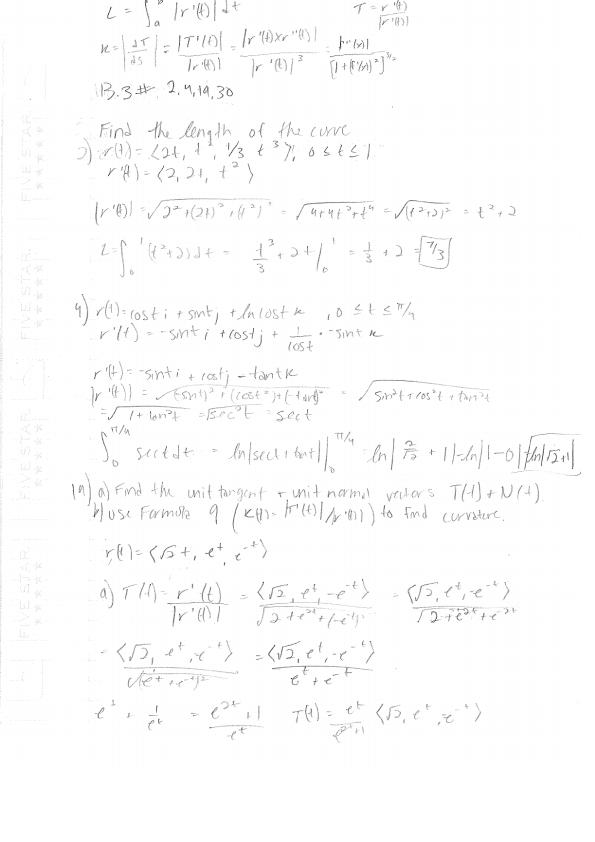 L = ∫_a^b |r'(t)| dt    T = r'(t)/|r'(t)|
κ = |dT/ds| = |T'(t)|/|r'(t)| = |r'(t)×r''(t)|/|r'(t)|³ = |f''(x)|/[1+(f'(x))²]^(3/2)
13.3 # 2, 4, 19, 30
Find the length of the curve
2) r(t) = ⟨2t, t², 1/3 t³⟩, 0 ≤ t ≤ 1
r'(t) = ⟨2, 2t, t²⟩
|r'(t)| = √(2²+(2t)²+(t²)²) = √(4+4t²+t⁴) = √(t²+2)² = t²+2
L = ∫_0^1 (t²+2)dt = t³/3 + 2t |_0^1 = 1/3 + 2 = 7/3
4) r(t) = cost i + sint j + ln cost k, 0 ≤ t ≤ π/4
r'(t) = -sint i + cost j + 1/cost · -sint k
r'(t) = -sint i + cost j - tant k
|r'(t)| = √((-sint)² + (cost)² + (-tant)²) = √(sin²t + cos²t + tan²t)
= √(1+tan²t) = √sec²t = sect
∫_0^(π/4) sect dt = ln|sect + tant| |_0^(π/4) = ln|2/√2 + 1| - ln|1-0| = ln|√2+1|
19) a) Find the unit tangent + unit normal vectors T(t) + N(t)
b) use Formula 9 (κ(t) = |T'(t)|/|r'(t)|) to find curvature.
r(t) = ⟨√2 t, e^t, e^-t⟩
a) T(t) = r'(t)/|r'(t)| = ⟨√2, e^t, -e^-t⟩/√(2+e^2t+(-e^-t)²) = ⟨√2, e^t, -e^-t⟩/√(2+e^2t+e^-2t)
= ⟨√2, e^t, -e^-t⟩/√(e^t+e^-t)² = ⟨√2, e^t, -e^-t⟩/e^t+e^-t
e^t + 1/e^t = e^2t+1/e^t    T(t) = e^t/e^2t+1 ⟨√2, e^t, -e^-t⟩
FIVE STAR
FIVE STAR
FIVE STAR
FIVE STAR